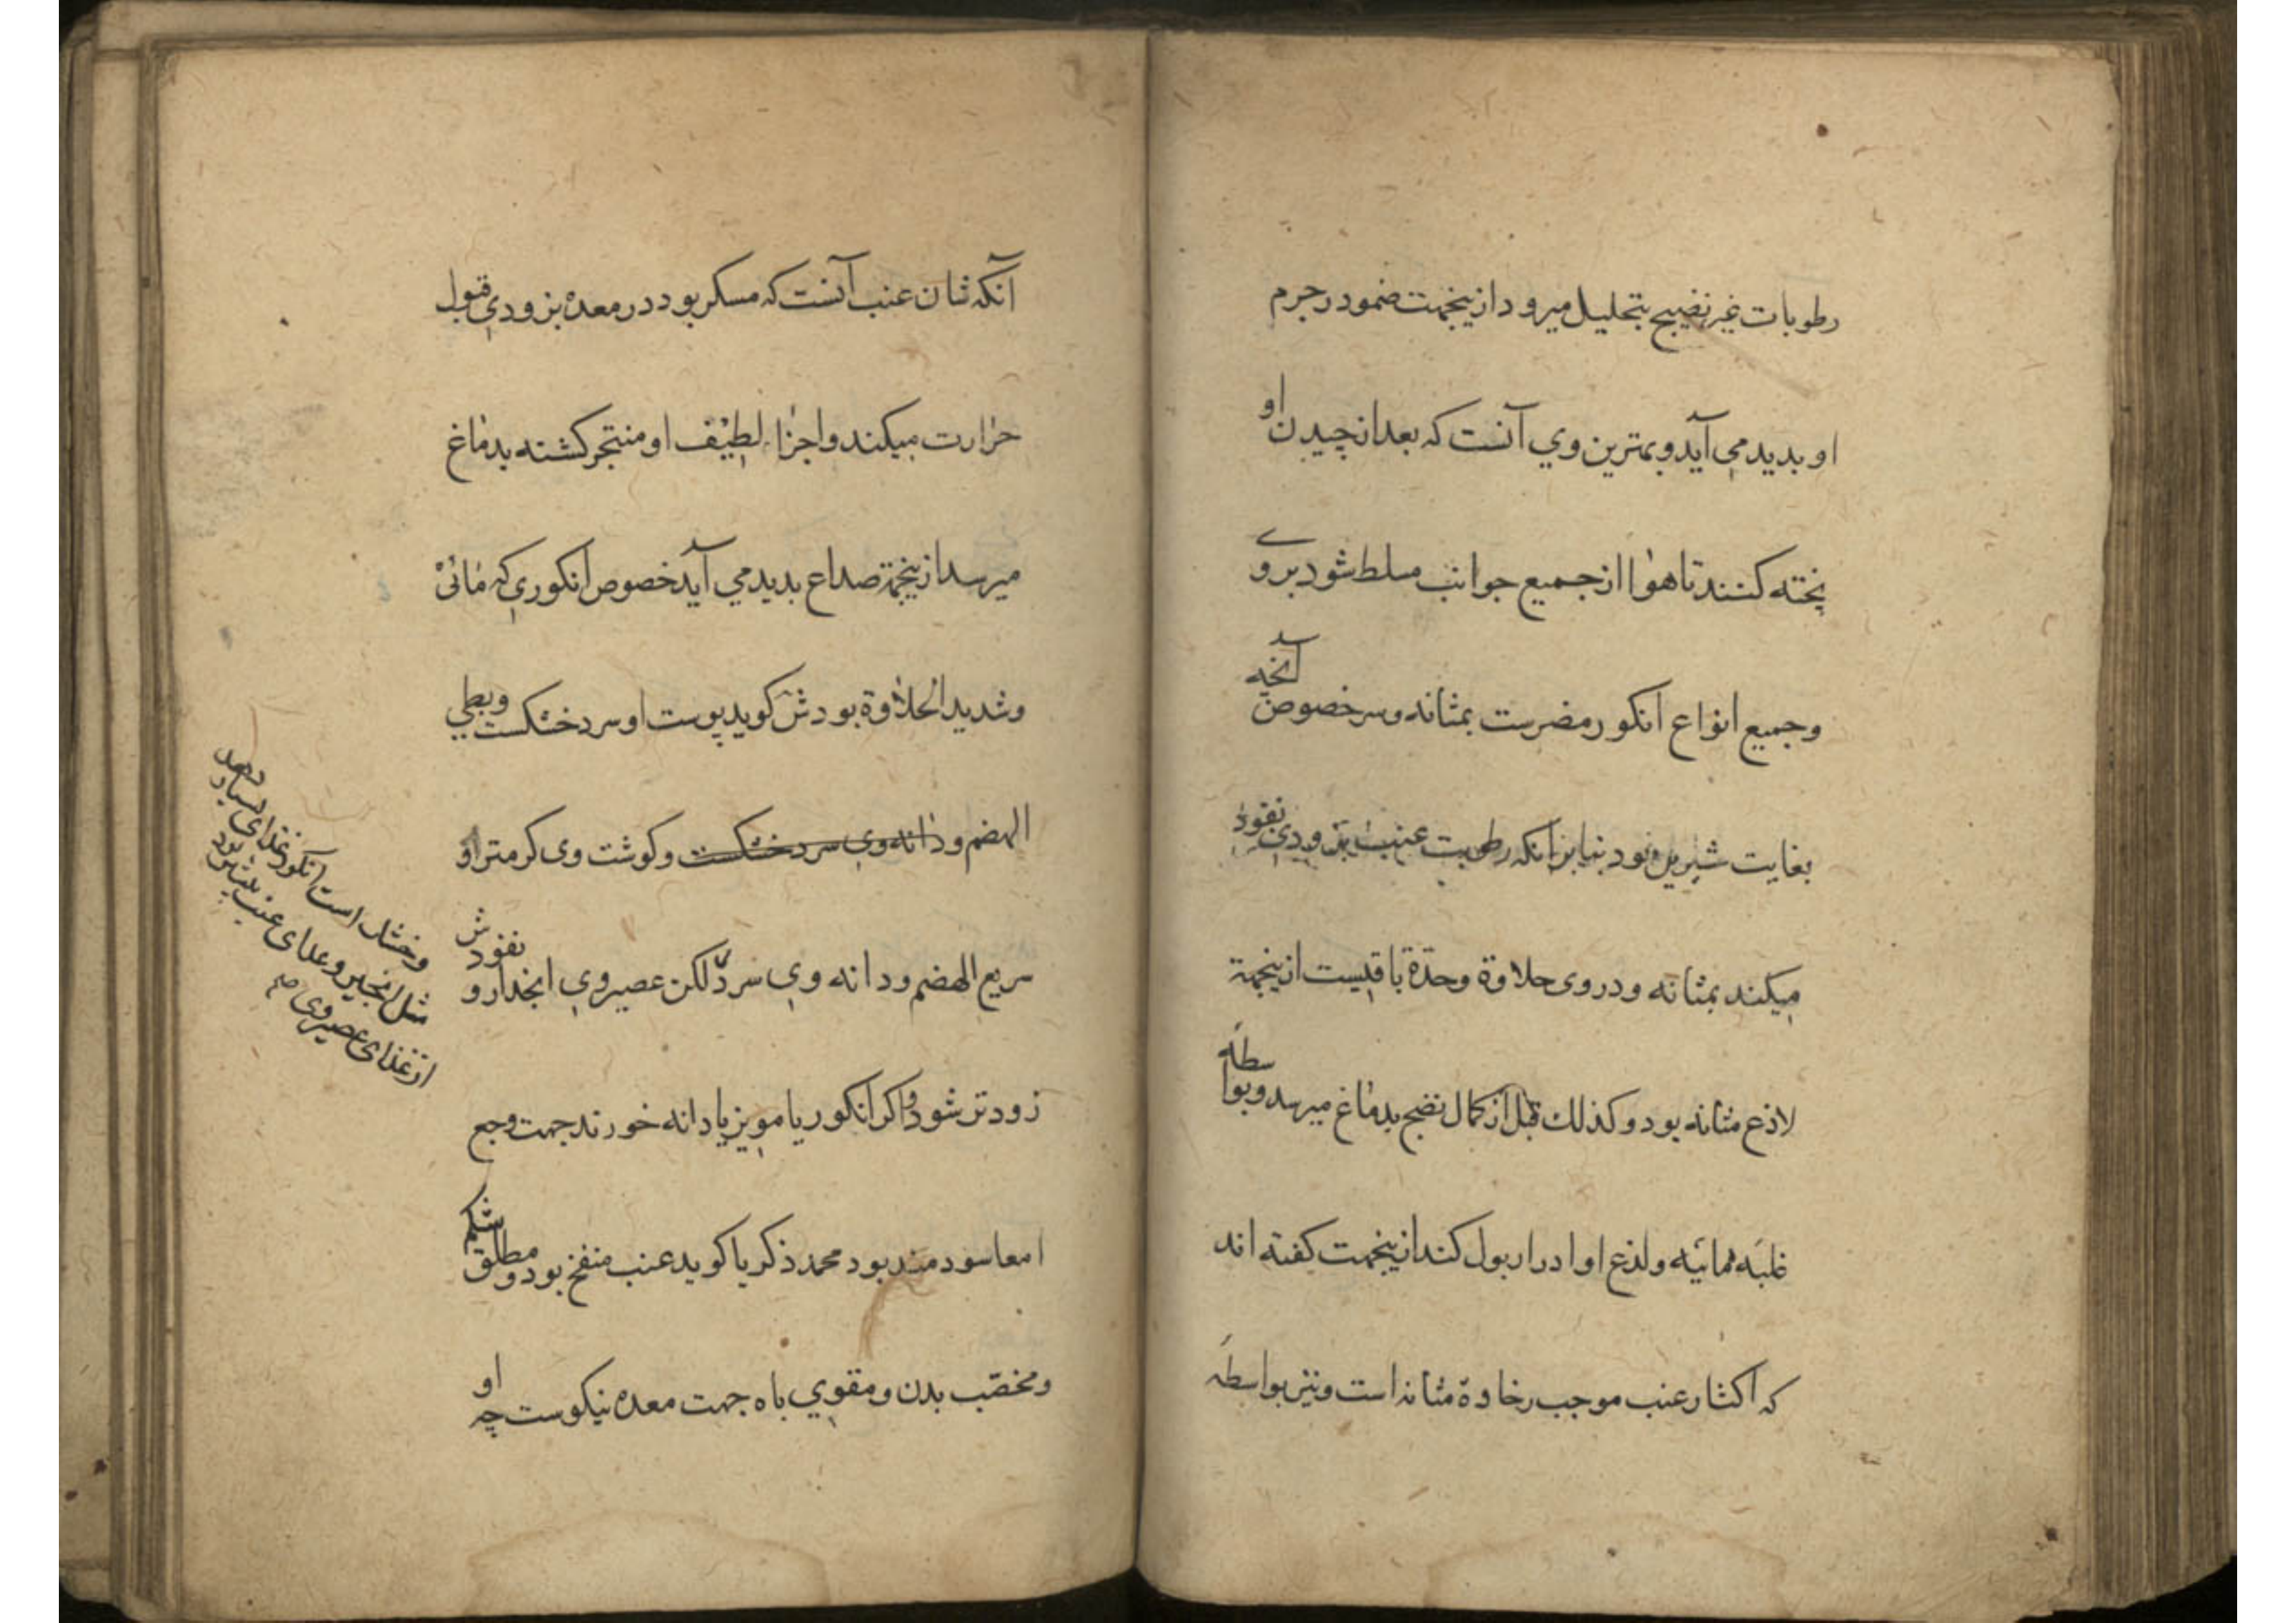 رطوبات غیر نضیج بتحلیل میرود ازینجهت ضمود رجرم
او بدید می آید و بهترین وي آنست که بعد از چیدن او
پخته کنند تا هوا از جمیع جوانب مسلط شود بروے
وجمیع انواع انکور مضرست بمثانه وسر خصوص آنچه
بغایت شیرین بود بنابر آنکه رطوبت عنب بزودی نفوذ
میکند بمثانه ودر وی حلاوة وحدّة باقیست ازینجهة
لاذع مثانه بود وکذلك قبل از کمال نضج بدماغ میرسد وبواسطه
غلبه مائیه ولذع او ادرار بول کند ازینجهت کفته اند
که اکثار عنب موجب رخاوة مثانه است ونیز بواسطه
آنکه شان عنب آنست که مسکر بود در معده بزودي قبول
حرارت میکند واجزاء لطیف او متبخر کشته بدماغ
میرسد ازینجهة صداع بدید می آید خصوص انکوري که مائی
وشدید الحلاوة بود ش کوید پوست او سرد خشکست وبطي
الهضم ودانه وی سرد خشکست وکوشت وی کرمتر او
سریع الهضم ودانه وي سرد لکن عصیر وي انحدار و نفوذش
زودتر شود واکر انکور یا مویز با دانه خورند جهت وجع
امعا سودمند بود محمد ذکریا کوید عنب منفخ بود ومطلق شکم
ومخصّب بدن ومقوي باه جهت معده نیکوست چه او
وخشك است انکور غذای بسیار دهد
مثل انجیر وغذای عنب بیشتر بود
از غذای عصیر وی صح